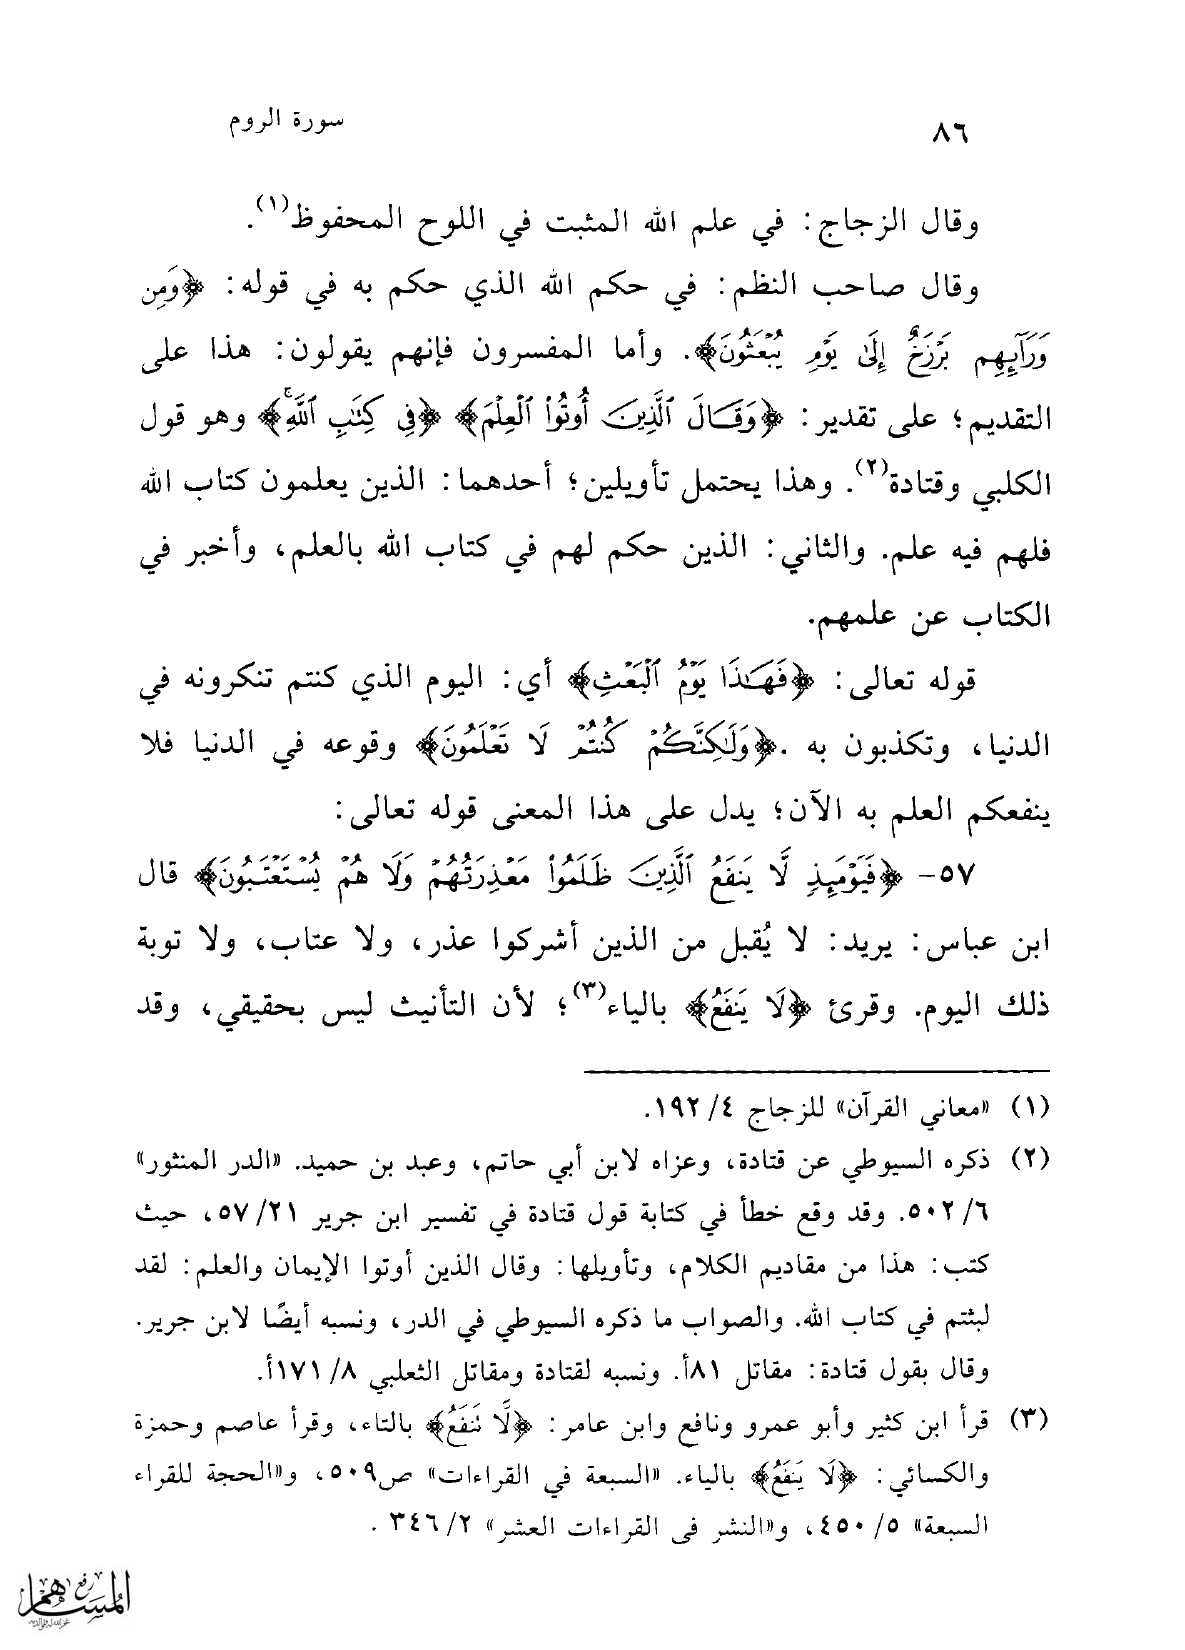 ٨٦
سورة الروم
وقال الزجاج: في علم الله المثبت في اللوح المحفوظ(١).
وقال صاحب النظم: في حكم الله الذي حكم به في قوله: ﴿وَمِن
وَرَآئِهِم بَرْزَخٌ إِلَىٰ يَوْمِ يُبْعَثُونَ﴾. وأما المفسرون فإنهم يقولون: هذا على
التقديم؛ على تقدير: ﴿وَقَالَ ٱلَّذِينَ أُوتُواْ ٱلْعِلْمَ﴾ ﴿فِي كِتَٰبِ ٱللَّهِ﴾ وهو قول
الكلبي وقتادة(٢). وهذا يحتمل تأويلين؛ أحدهما: الذين يعلمون كتاب الله
فلهم فيه علم. والثاني: الذين حكم لهم في كتاب الله بالعلم، وأخبر في
الكتاب عن علمهم.
قوله تعالى: ﴿فَهَٰذَا يَوْمُ ٱلْبَعْثِ﴾ أي: اليوم الذي كنتم تنكرونه في
الدنيا، وتكذبون به .﴿وَلَٰكِنَّكُمْ كُنتُمْ لَا تَعْلَمُونَ﴾ وقوعه في الدنيا فلا
ينفعكم العلم به الآن؛ يدل على هذا المعنى قوله تعالى:
٥٧- ﴿فَيَوْمَئِذٍ لَّا يَنفَعُ ٱلَّذِينَ ظَلَمُواْ مَعْذِرَتُهُمْ وَلَا هُمْ يُسْتَعْتَبُونَ﴾ قال
ابن عباس: يريد: لا يُقبل من الذين أشركوا عذر، ولا عتاب، ولا توبة
ذلك اليوم. وقرئ ﴿لَا يَنفَعُ﴾ بالياء(٣)؛ لأن التأنيث ليس بحقيقي، وقد
(١) «معاني القرآن» للزجاج ٤/ ١٩٢.
(٢) ذكره السيوطي عن قتادة، وعزاه لابن أبي حاتم، وعبد بن حميد. «الدر المنثور»
٦/ ٥٠٢. وقد وقع خطأ في كتابة قول قتادة في تفسير ابن جرير ٢١/ ٥٧، حيث
كتب: هذا من مقاديم الكلام، وتأويلها: وقال الذين أوتوا الإيمان والعلم: لقد
لبثتم في كتاب الله. والصواب ما ذكره السيوطي في الدر، ونسبه أيضًا لابن جرير.
وقال بقول قتادة: مقاتل ٨١أ. ونسبه لقتادة ومقاتل الثعلبي ٨/ ١٧١أ.
(٣) قرأ ابن كثير وأبو عمرو ونافع وابن عامر: ﴿لَّا تَنفَعُ﴾ بالتاء، وقرأ عاصم وحمزة
والكسائي: ﴿لَا يَنفَعُ﴾ بالياء. «السبعة في القراءات» ص٥٠٩، و«الحجة للقراء
السبعة» ٥/ ٤٥٠، و«النشر فى القراءات العشر» ٢/ ٣٤٦ .